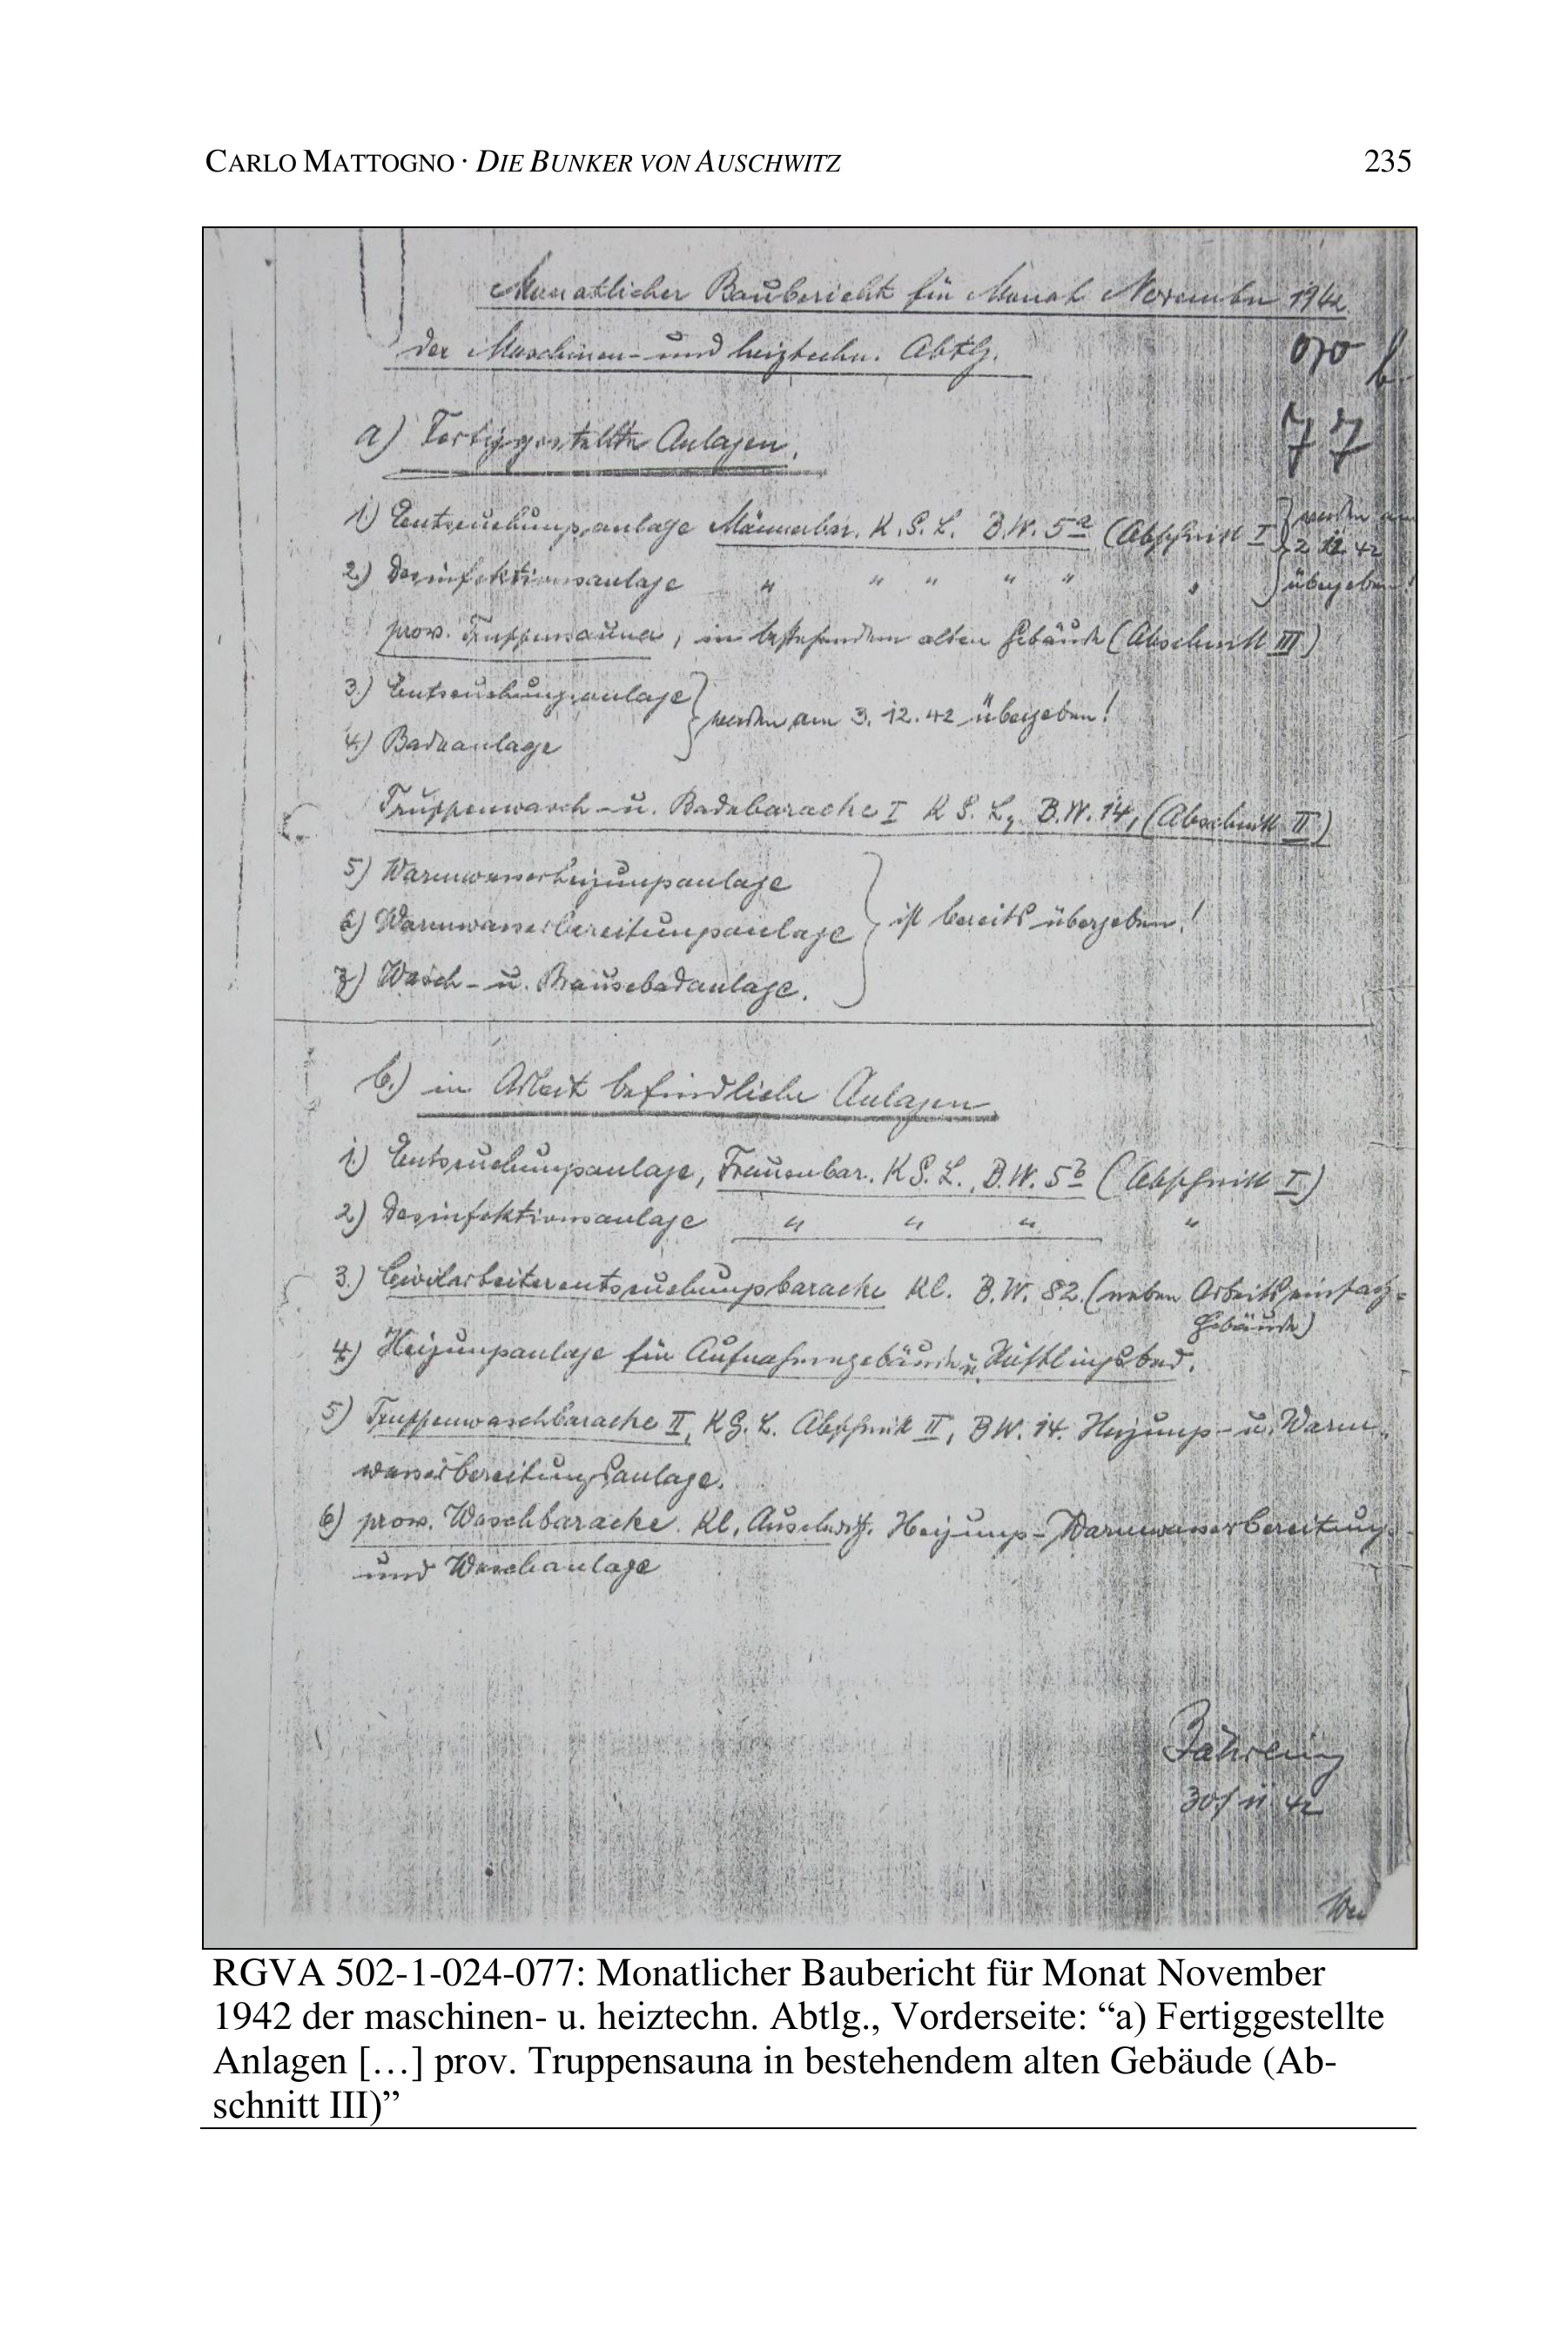 CARLO MATTOGNO · DIE BUNKER VON AUSCHWITZ 235
Monatlicher Baubericht für Monat November 1942.
der Maschinen- und heiztechn. Abtlg.
070
77
a) Fertiggestellte Anlagen.
1.) Entseuchungsanlage Männerbar. K.G.L. B.W. 5a (Abschnitt I } werden am
2.12.42
2.) Desinfektionsanlage " " " " " " } übergeben!
prov. Truppensauna, in bestehendem alten Gebäude (Abschnitt III)
3.) Entseuchungsanlage
} werden am 3.12.42 übergeben!
4.) Badeanlage
Truppenwasch- u. Badebaracke I K G. L, B.W. 14, (Abschnitt II)
5) Warmwasserheizungsanlage
6) Warmwasserbereitungsanlage } ist bereits übergeben!
7) Wasch- u. Brausebadanlage.
b.) in Arbeit befindliche Anlagen
1.) Entseuchungsanlage, Frauenbar. K G. L., B.W. 5b (Abschnitt I)
2.) Desinfektionsanlage " " " "
3.) Civilarbeiterentseuchungsbaracke Kl. B.W. 82. (neben Arbeitseinsatz-
Gebäude)
4.) Heizungsanlage für Aufnahmegebäude u. Häftlingsbad.
5) Truppenwaschbaracke II, KG. L. Abschnitt II, BW. 14. Heizungs- u. Warm-
wasserbereitungsanlage.
6) prov. Waschbaracke. Kl. Auschwitz. Heizungs- Warmwasserbereitungs-
und Waschanlage
30/11.42
RGVA 502-1-024-077: Monatlicher Baubericht für Monat November
1942 der maschinen- u. heiztechn. Abtlg., Vorderseite: “a) Fertiggestellte
Anlagen […] prov. Truppensauna in bestehendem alten Gebäude (Ab-
schnitt III)”